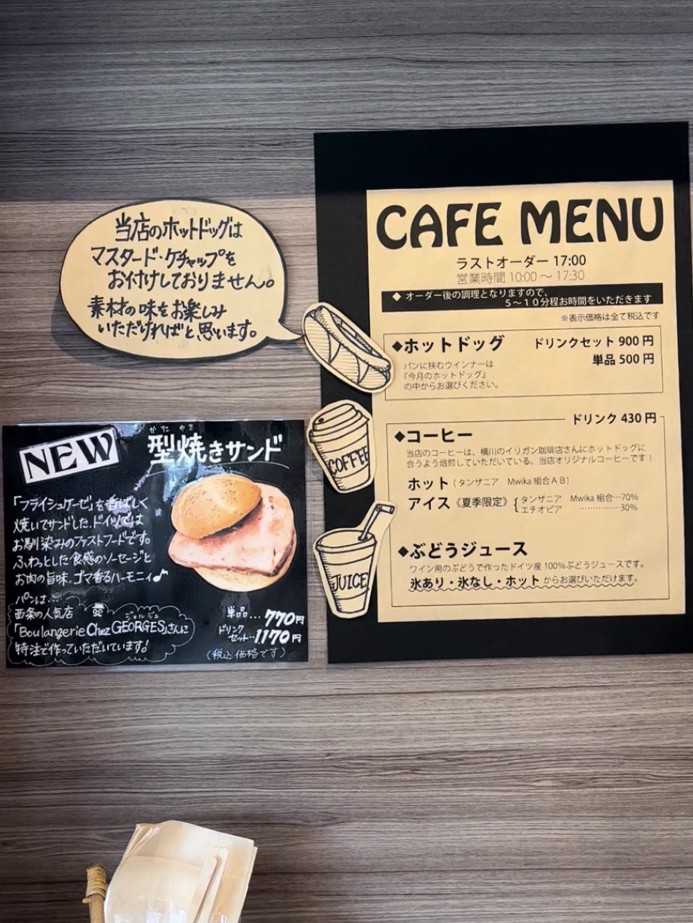 当店のホットドッグは
マスタード・ケチャップを
お付けしておりません。
素材の味をお楽しみ
いただければと思います。
CAFE MENU
ラストオーダー 17:00
営業時間 10:00 ～ 17:30
◆ オーダー後の調理となりますので、
5～10分程お時間をいただきます
※表示価格は全て税込です
◆ホットドッグ ドリンクセット 900円
単品 500円
パンに挟むウインナーは
『今月のホットドッグ』
の中からお選びください。
ドリンク 430円
◆コーヒー
当店のコーヒーは、横川のイリガン珈琲店さんにホットドッグに
合うよう焙煎していただいている、当店オリジナルコーヒーです！
ホット（タンザニア Mwika組合AB）
アイス《夏季限定》{タンザニア Mwika組合…70%
エチオピア …………30%
◆ぶどうジュース
ワイン用のぶどうで作ったドイツ産100%ぶどうジュースです。
氷あり・氷なし・ホット からお選びいただけます。
COFFEE
JUICE
NEW
かたやき
型焼きサンド
「フライシュケーゼ」を香ばしく
焼いてサンドした、ドイツでは
お馴染みのファストフードです。
ふわっとした食感のソーセージと
お肉の旨味、ゴマ香るハーモニィ♪
パンは…
西条の人気店
ジョルジュ
「Boulangerie Chez GEORGES」さんに
特注で作っていただいています！
単品…770円
ドリンク
セット…1170円
(税込価格です)